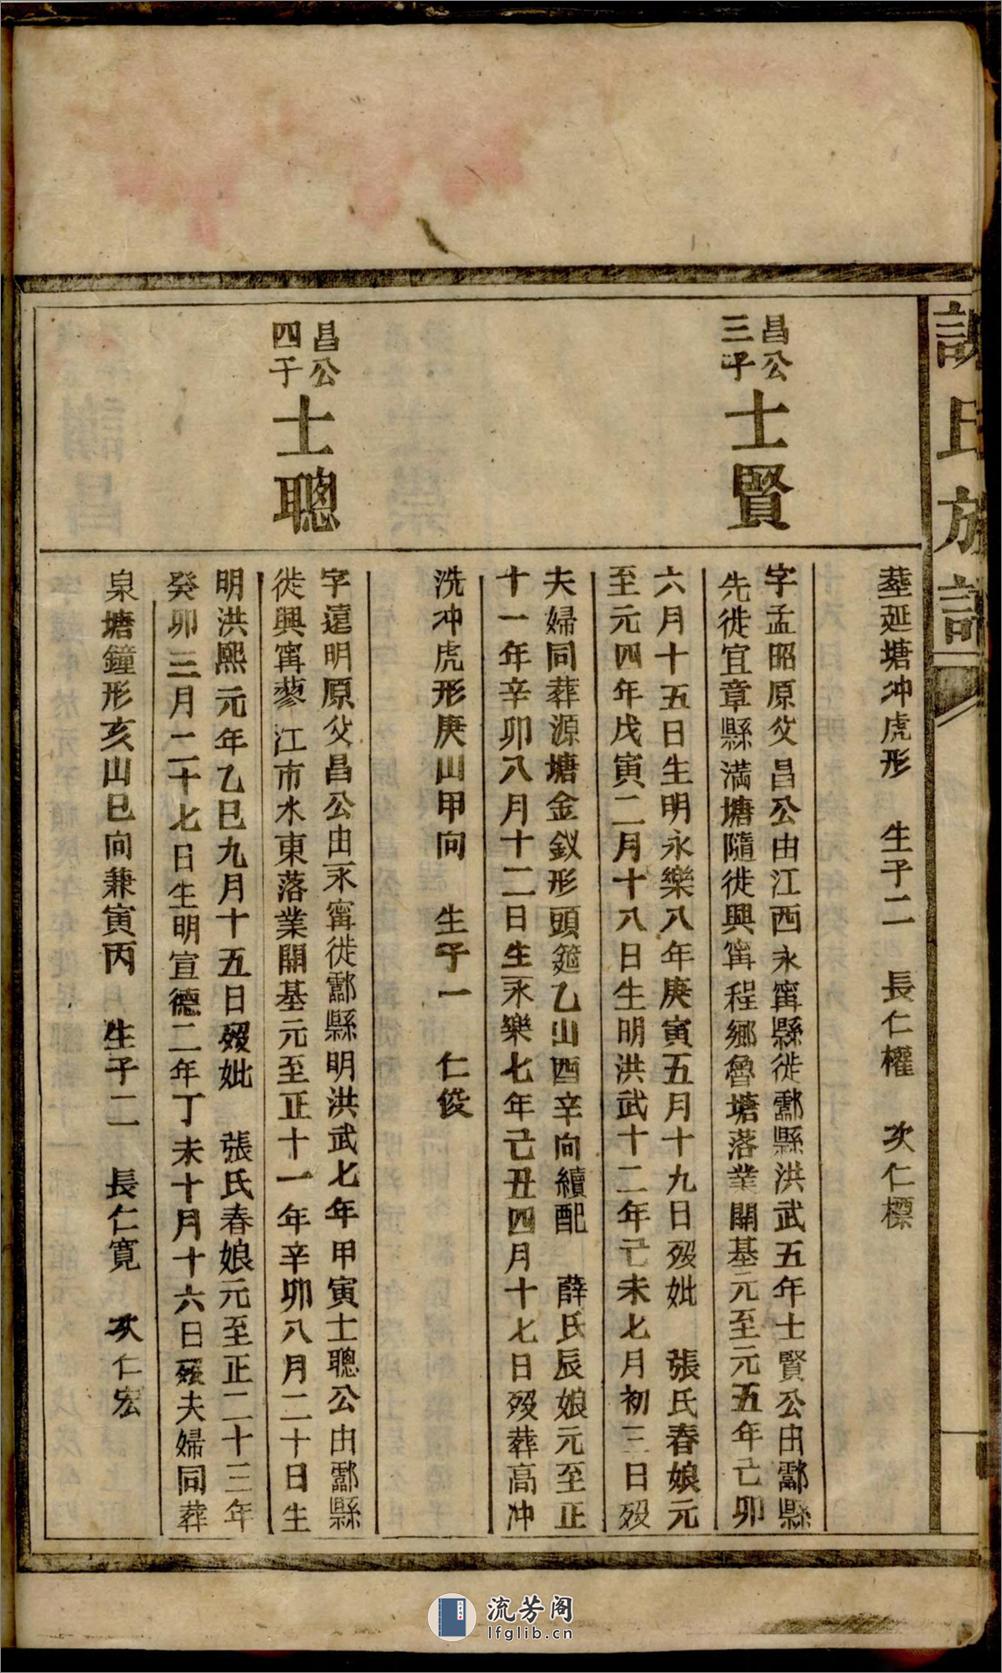 氏族譜
塟延塘冲虎形 生子二 長仁權 次仁標
昌公
三子
士賢
字孟昭原父昌公由江西永寗縣徙酃縣洪武五年士賢公由酃縣
先徙宜章縣満塘隨徙興寗程鄉魯塘落業開基元至元五年己卯
六月十五日生明永樂八年庚寅五月十九日歿妣 張氏春娘元
至元四年戊寅二月十八日生明洪武十二年己未七月初三日歿
夫婦同葬源塘金釵形頭筵乙山酉辛向續配 薛氏辰娘元至正
十一年辛卯八月十二日生永樂七年己丑四月十七日歿葬高冲
洗冲虎形庚山甲向 生子一 仁俊
昌公
四子
士聰
字遠明原父昌公由永寗徙酃縣明洪武七年甲寅士聰公由酃縣
徙興寗蓼江市水東落業開基元至正十一年辛卯八月二十日生
明洪熙元年乙巳九月十五日歿妣 張氏春娘元至正二十三年
癸卯三月二十七日生明宣德二年丁未十月十六日歿夫婦同葬
泉塘鐘形亥山巳向兼寅丙 生子二 長仁寛 次仁宏
流芳阁
lfglib.cn